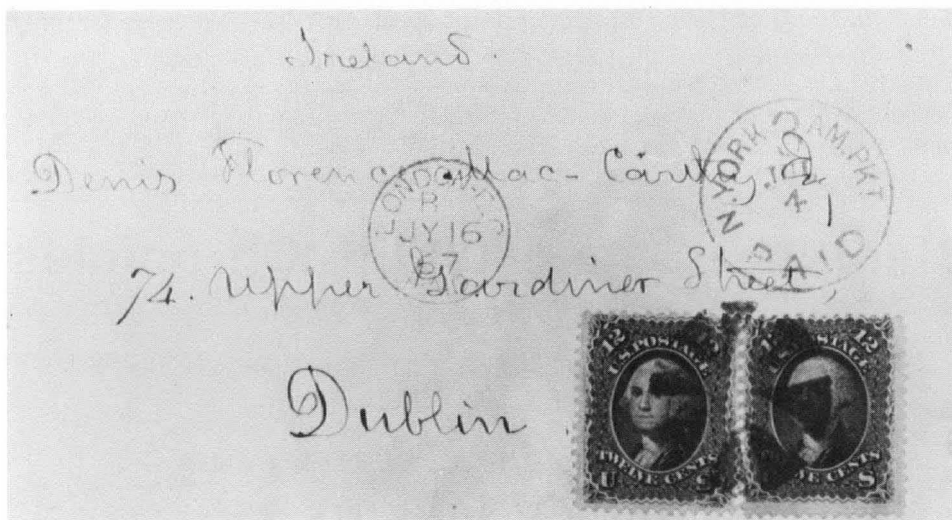 Ireland.
Denis Florence Mac-Carthy,
74. Upper Gardiner Street,
Dublin.
LONDON
R
JY 16
67
PAID
N.YORK AM.PKT
4
PAID
12
U.S. POSTAGE
TWELVE CENTS
U S
12
U.S. POSTAGE
TWELVE CENTS
S